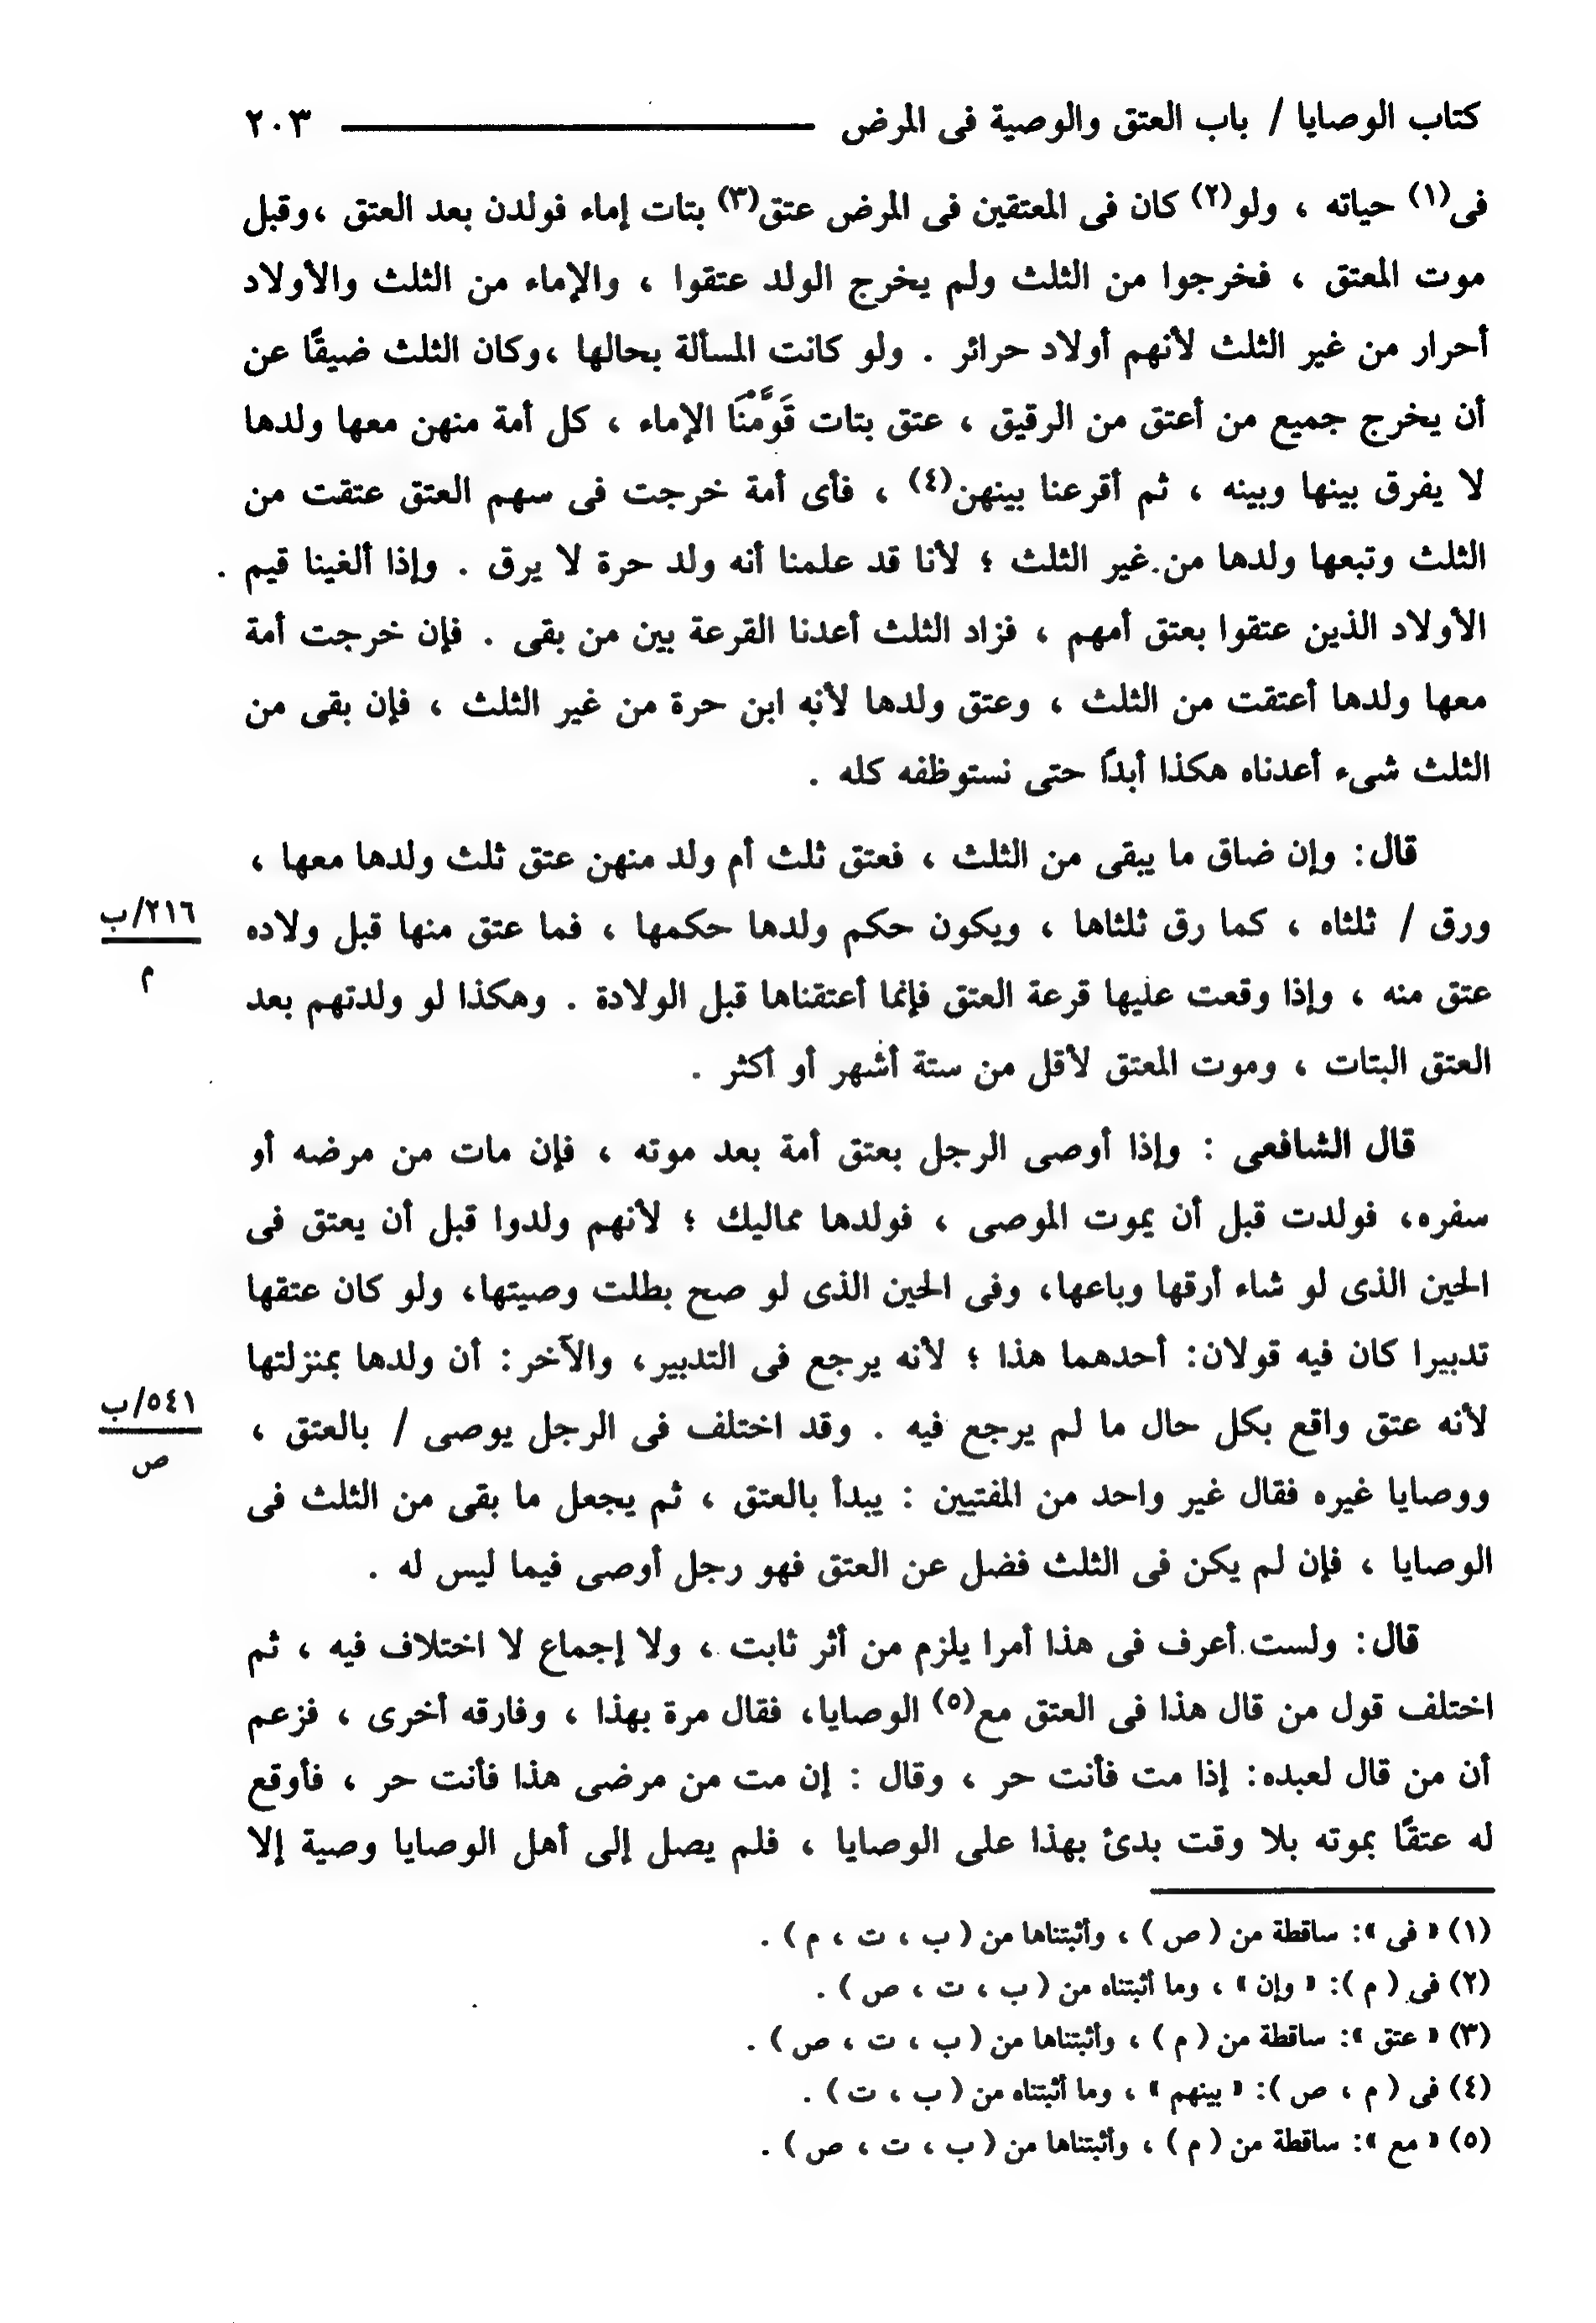 كتاب الوصايا / باب العتق والوصية فى المرض ٢٠٣
فى(١) حياته ، ولو(٢) كان فى المعتقين فى المرض عتق(٣) بتات إماء فولدن بعد العتق ،وقبل
موت المعتق ، فخرجوا من الثلث ولم يخرج الولد عتقوا ، والإماء من الثلث والأولاد
أحرار من غير الثلث لأنهم أولاد حرائر . ولو كانت المسألة بحالها ،وكان الثلث ضيقًا عن
أن يخرج جميع من أعتق من الرقيق ، عتق بتات قَوَّمْنَا الإماء ، كل أمة منهن معها ولدها
لا يفرق بينها وبينه ، ثم أقرعنا بينهن(٤) ، فأى أمة خرجت فى سهم العتق عتقت من
الثلث وتبعها ولدها من غير الثلث ؛ لأنا قد علمنا أنه ولد حرة لا يرق . وإذا ألغينا قيم
الأولاد الذين عتقوا بعتق أمهم ، فزاد الثلث أعدنا القرعة بين من بقى . فإن خرجت أمة
معها ولدها أعتقت من الثلث ، وعتق ولدها لأنه ابن حرة من غير الثلث ، فإن بقى من
الثلث شىء أعدناه هكذا أبدًا حتى نستوظفه كله .
قال: وإن ضاق ما يبقى من الثلث ، فعتق ثلث أم ولد منهن عتق ثلث ولدها معها ،
ورق / ثلثاه ، كما رق ثلثاها ، ويكون حكم ولدها حكمها ، فما عتق منها قبل ولاده
٢١٦/ب
م
عتق منه ، وإذا وقعت عليها قرعة العتق فإنما أعتقناها قبل الولادة . وهكذا لو ولدتهم بعد
العتق البتات ، وموت المعتق لأقل من ستة أشهر أو أكثر .
قال الشافعى : وإذا أوصى الرجل بعتق أمة بعد موته ، فإن مات من مرضه أو
سفره، فولدت قبل أن يموت الموصى ، فولدها مماليك ؛ لأنهم ولدوا قبل أن يعتق فى
الحين الذى لو شاء أرقها وباعها، وفى الحين الذى لو صح بطلت وصيتها، ولو كان عتقها
تدبيرا كان فيه قولان: أحدهما هذا ؛ لأنه يرجع فى التدبير، والآخر: أن ولدها بمنزلتها
لأنه عتق واقع بكل حال ما لم يرجع فيه . وقد اختلف فى الرجل يوصى / بالعتق ،
٥٤١/ب
ص
ووصايا غيره فقال غير واحد من المفتيين : يبدأ بالعتق ، ثم يجعل ما بقى من الثلث فى
الوصايا ، فإن لم يكن فى الثلث فضل عن العتق فهو رجل أوصى فيما ليس له .
قال: ولست أعرف فى هذا أمرا يلزم من أثر ثابت ، ولا إجماع لا اختلاف فيه ، ثم
اختلف قول من قال هذا فى العتق مع(٥) الوصايا، فقال مرة بهذا ، وفارقه أخرى ، فزعم
أن من قال لعبده: إذا مت فأنت حر ، وقال : إن مت من مرضى هذا فأنت حر ، فأوقع
له عتقًا بموته بلا وقت بدئ بهذا على الوصايا ، فلم يصل إلى أهل الوصايا وصية إلا
(١) « فى »: ساقطة من ( ص ) ، وأثبتناها من ( ب ، ت ، م ) .
(٢) فى ( م ): « وإن » ، وما أثبتناه من ( ب ، ت ، ص ) .
(٣) « عتق »: ساقطة من ( م ) ، وأثبتناها من ( ب ، ت ، ص ) .
(٤) فى ( م ، ص ): « بينهم » ، وما أثبتناه من ( ب ، ت ) .
(٥) « مع »: ساقطة من ( م ) ، وأثبتناها من ( ب ، ت ، ص ) .